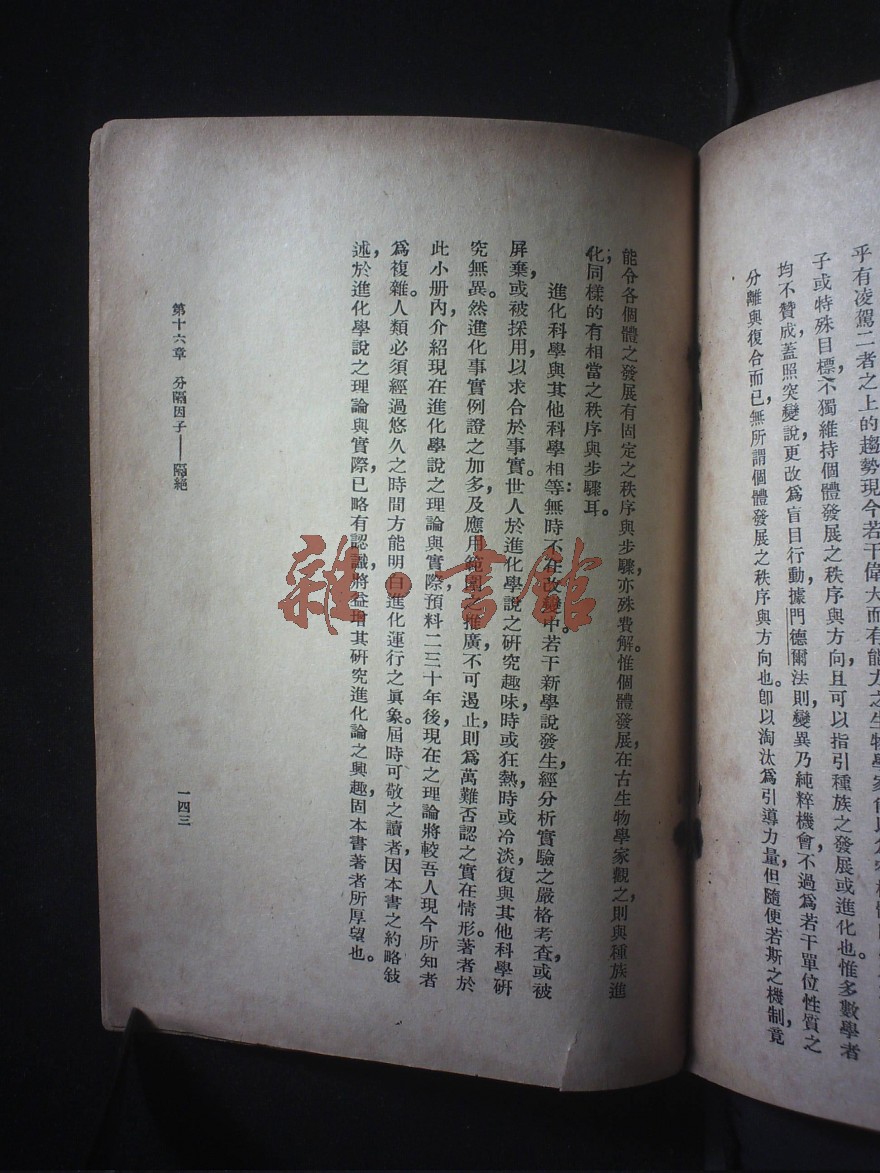 乎有凌駕二者之上的趨勢現今若干偉大而有能力之生物學家
子或特殊目標，不獨維持個體發展之秩序與方向且可以指引種族之發展或進化也。惟多數學者
均不贊成蓋照突變說，更改爲盲目行動，據門德爾法則，變異乃純粹機會，不過爲若干單位性質之
分離與復合而已，無所謂個體發展之秩序與方向也。卽以淘汰爲引導力量，但隨便若斯之機制，竟
能令各個體之發展有固定之秩序與步驟，亦殊費解。惟個體發展，在古生物學家觀之，則與種族進
化同樣的有相當之秩序與步驟耳。
進化科學與其他科學相等：無時不在改變中。若干新學說發生，經分析實驗之嚴格考查，或被
屏棄，或被採用，以求合於事實。世人於進化學說之研究趣味，時或狂熱，時或冷淡，復與其他科學研
究無異。然進化事實例證之加多，及應用範圍之推廣，不可遏止，則爲萬難否認之實在情形。著者於
此小册內，介紹現在進化學說之理論與實際，預料二三十年後，現在之理論，將較吾人現今所知者
爲複雜。人類必須經過悠久之時間，方能明白進化運行之眞象。屆時可敬之讀者，因本書之約略敍
述，於進化學說之理論與實際，已略有認識，將益增其研究進化論之興趣，固本書著者所厚望也。
第十六章　分隔因子——隔絕
一四三
雜·書館